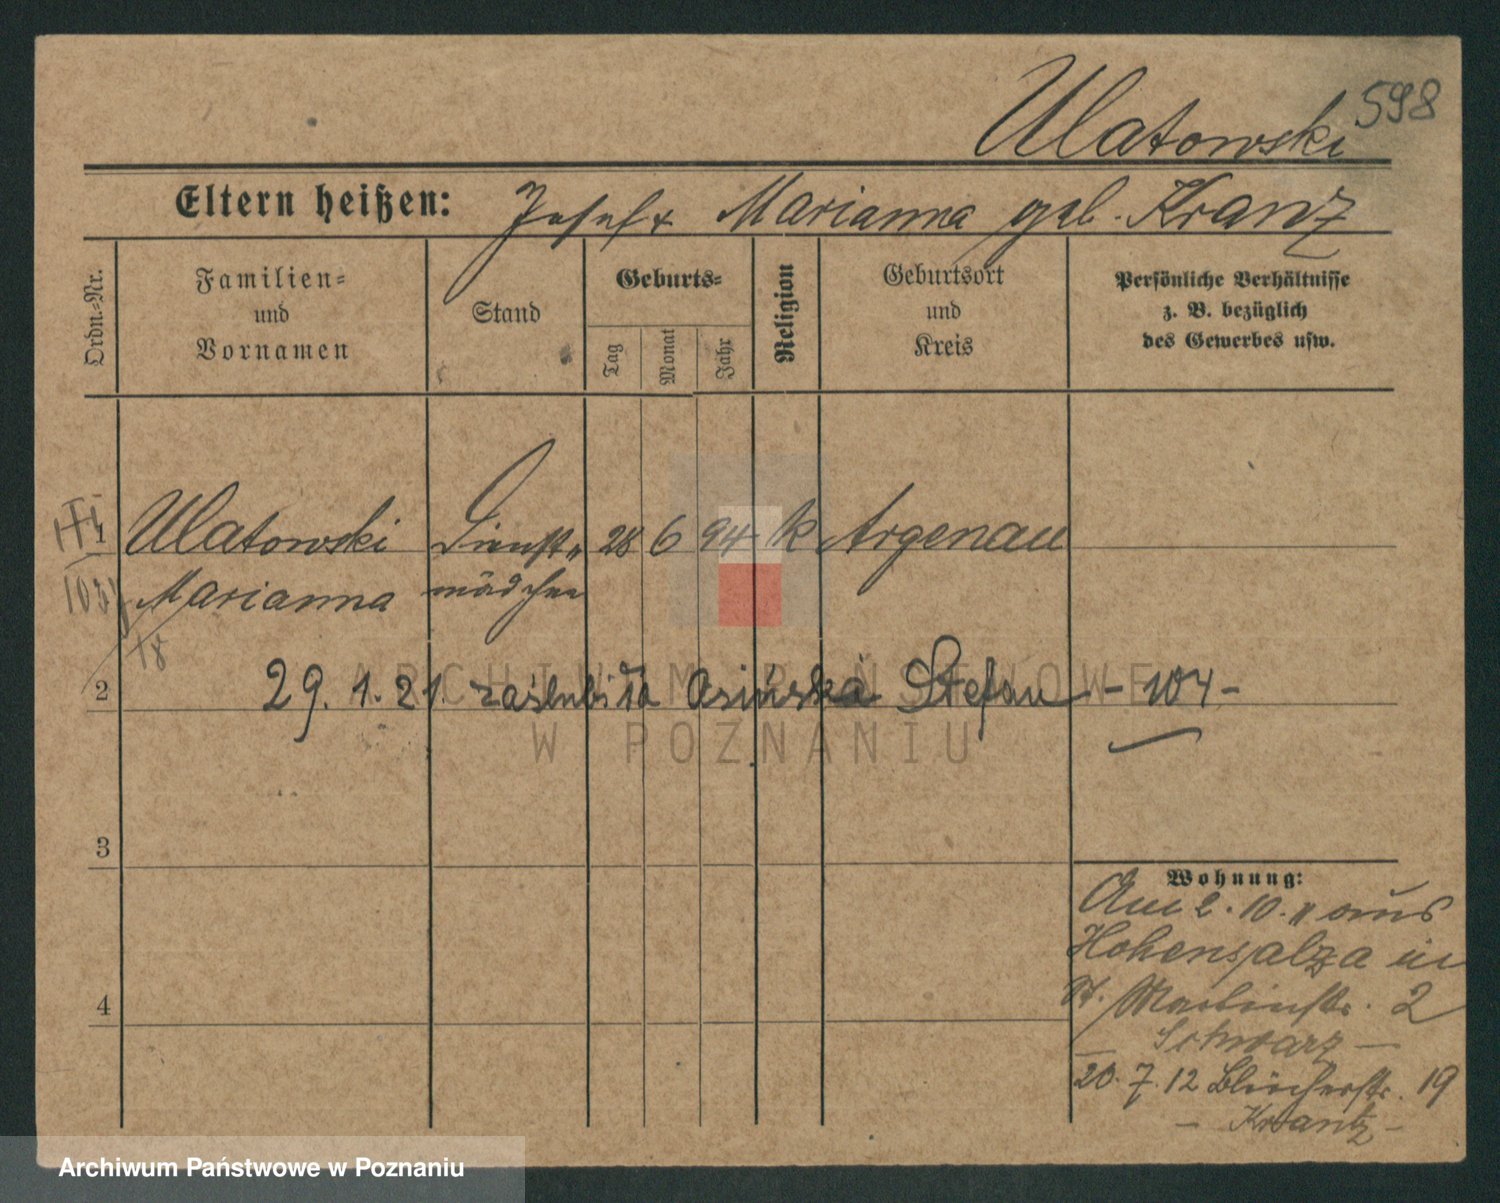 598
Ulatowski
Eltern heißen: Josef & Marianna geb. Kranz
Ordn.-Nr.
Familien-
und
Vornamen
Stand
Geburts-
Tag
Monat
Jahr
Religion
Geburtsort
und
Kreis
Persönliche Verhältnisse
z. B. bezüglich
des Gewerbes usw.
1 Ulatowski Dienst= 28 6 94 k Argenau
Marianna mädchen
18
2 29. 1. 21 zaślubiła Osińska Stefan - 104 -
3
Wohnung:
Am 2. 10. 11 aus
Hohensalza in
St. Martinstr. 2
- Schwarz -
4
20. 7. 12 Blücherstr. 19
- Krantz -
ARCHIWUM PAŃSTWOWE
W POZNANIU
Archiwum Państwowe w Poznaniu